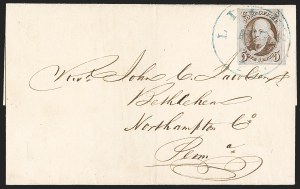 POST OFFICE
L I
Revd. John C. Jacobson
Bethlehem
Northampton Co.
Penna.